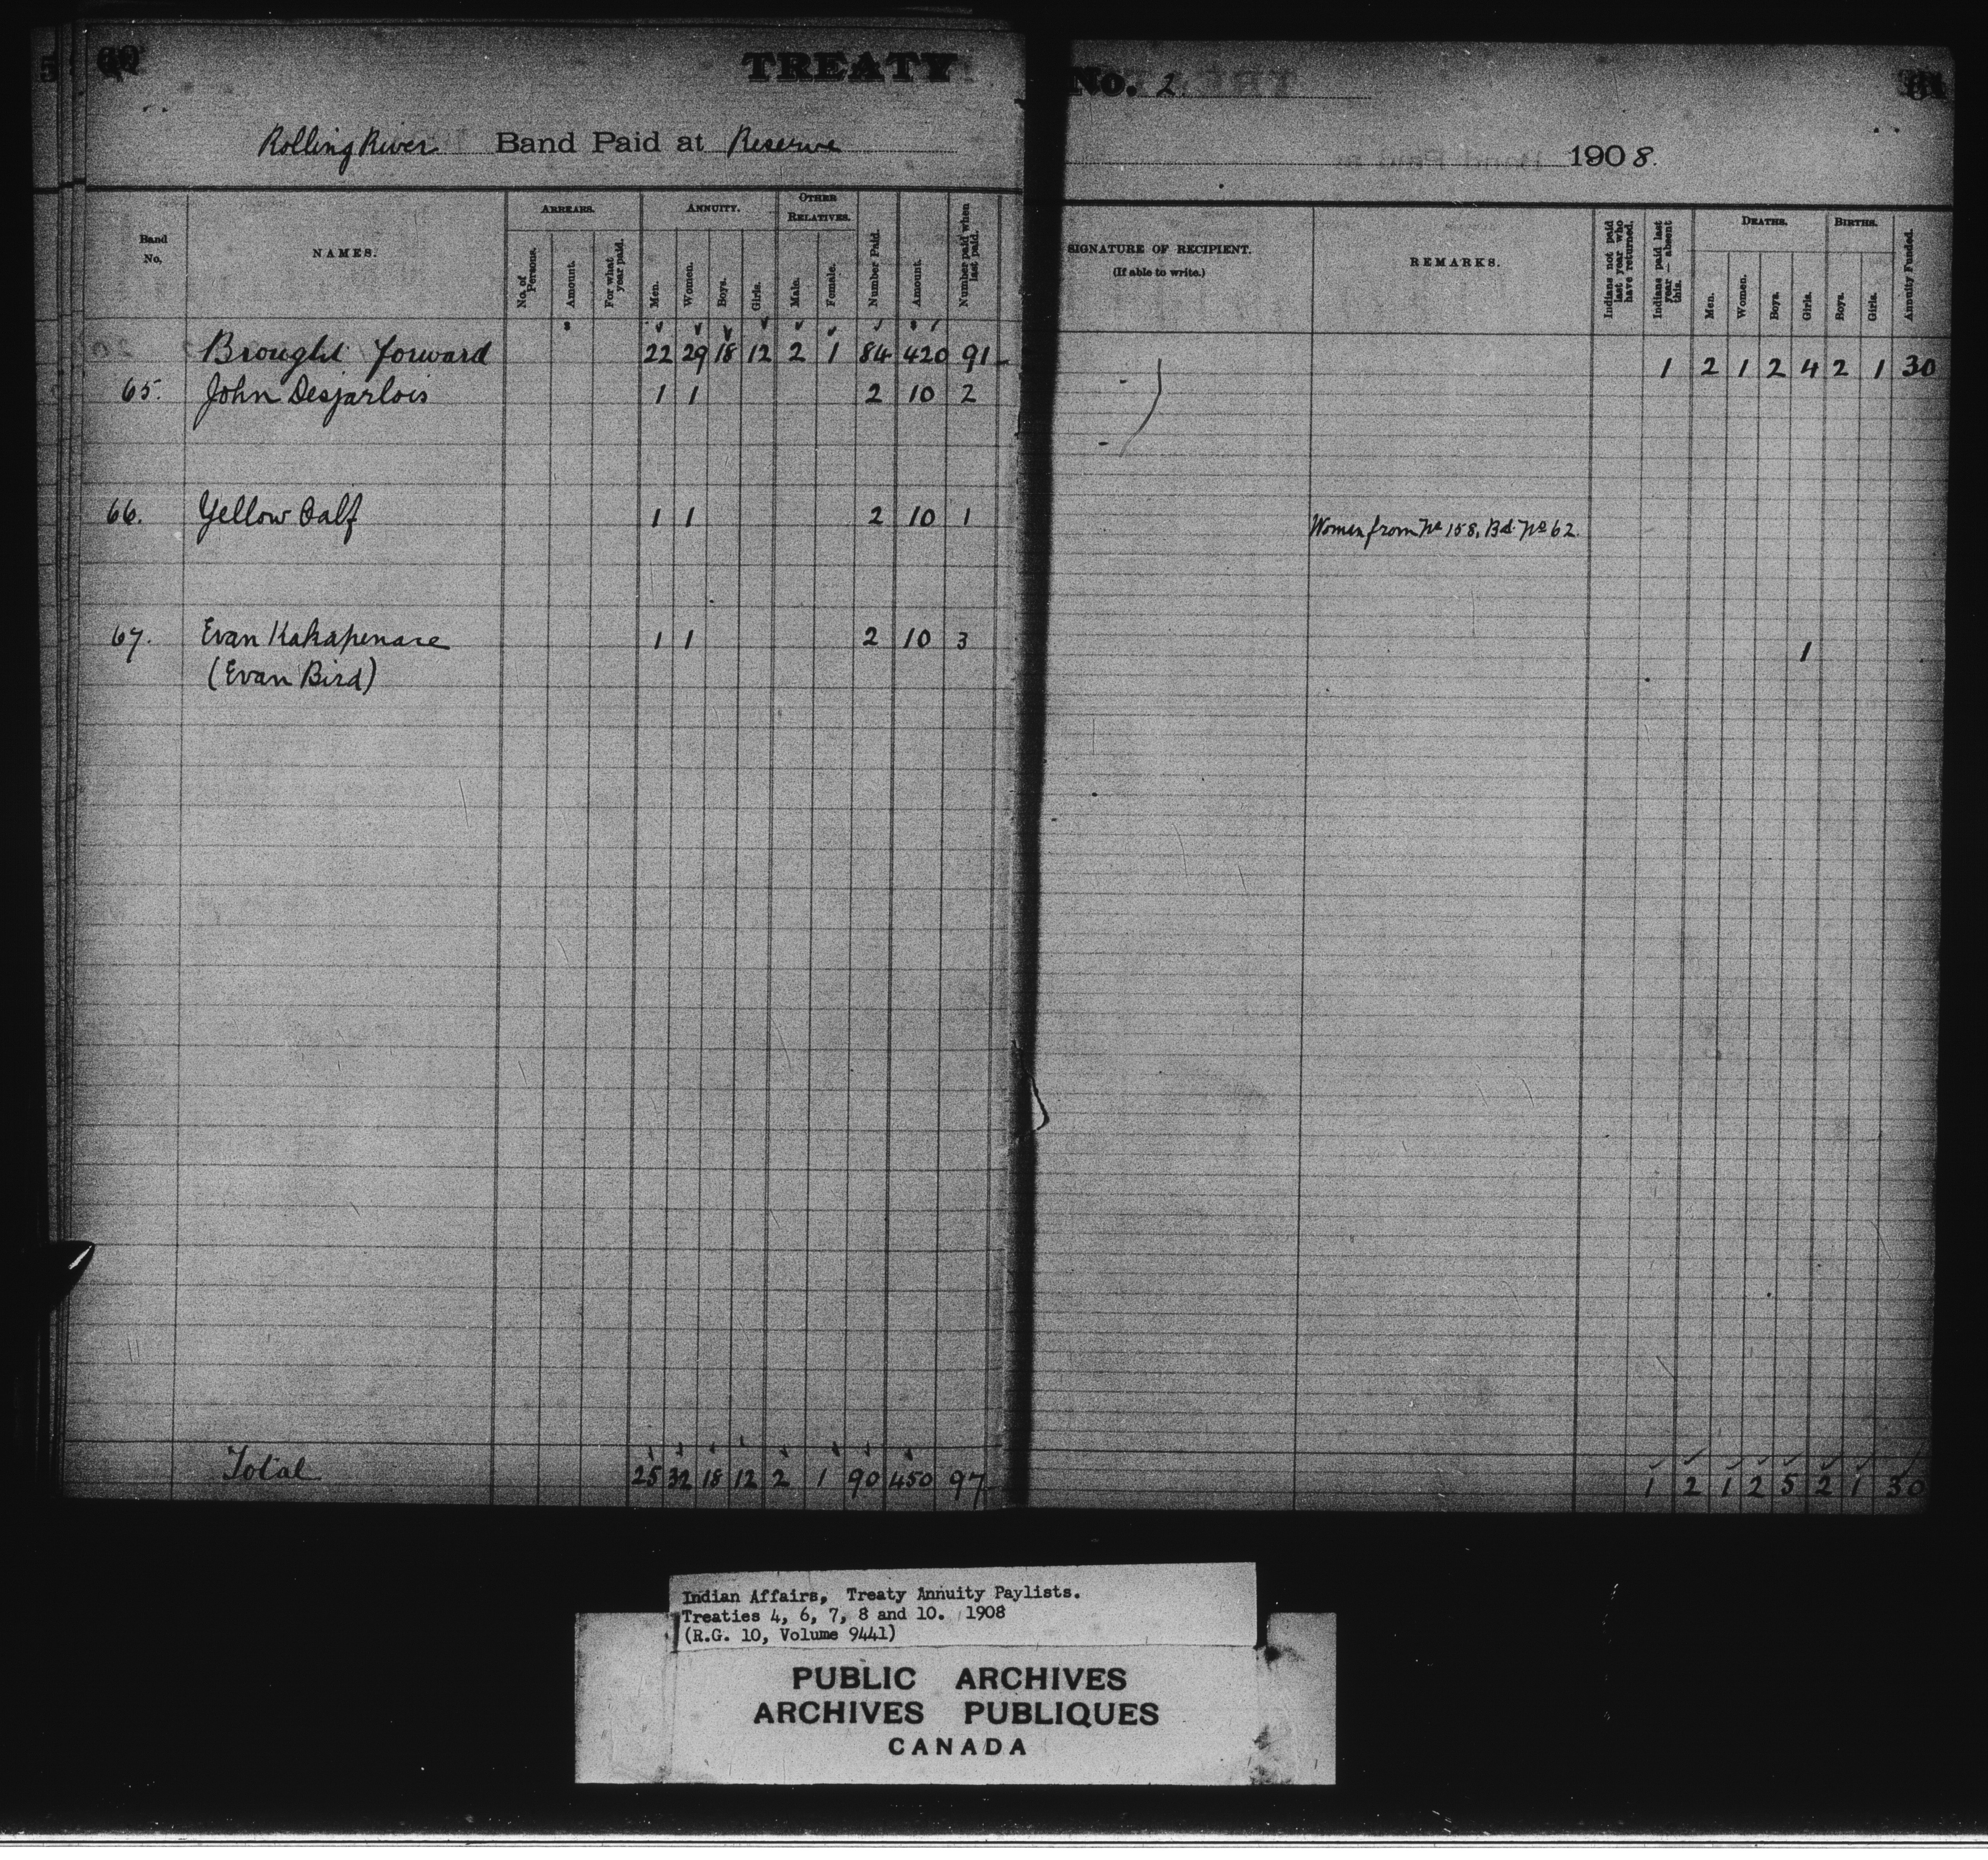 60 TREATY No. 2. 61
Rolling River Band Paid at Reserve 1908.
Band No. NAMES. ARREARS. No. of Persons. Amount. For what year paid. ANNUITY. Men. Women. Boys. Girls. OTHER RELATIVES. Male. Female. Number Paid. Amount. Number paid when last paid. SIGNATURE OF RECIPIENT. (If able to write.) REMARKS. Indians not paid last year who have returned. Indians paid last year — absent this. DEATHS. Men. Women. Boys. Girls. BIRTHS. Boys. Girls. Annuity Funded.
Brought forward 22 29 18 12 2 1 84 420 91 1 2 1 2 4 2 1 30
65. John Desjarlois 1 1 2 10 2
66. Yellow Calf 1 1 2 10 1 Women from No 158, Bd. No 62.
67. Evan Kakapenace 1 1 2 10 3 1
(Evan Bird)
Total 25 32 18 12 2 1 90 450 97 1 2 1 2 5 2 1 30
Indian Affairs, Treaty Annuity Paylists.
Treaties 4, 6, 7, 8 and 10. 1908
(R.G. 10, Volume 9441)
PUBLIC ARCHIVES
ARCHIVES PUBLIQUES
CANADA